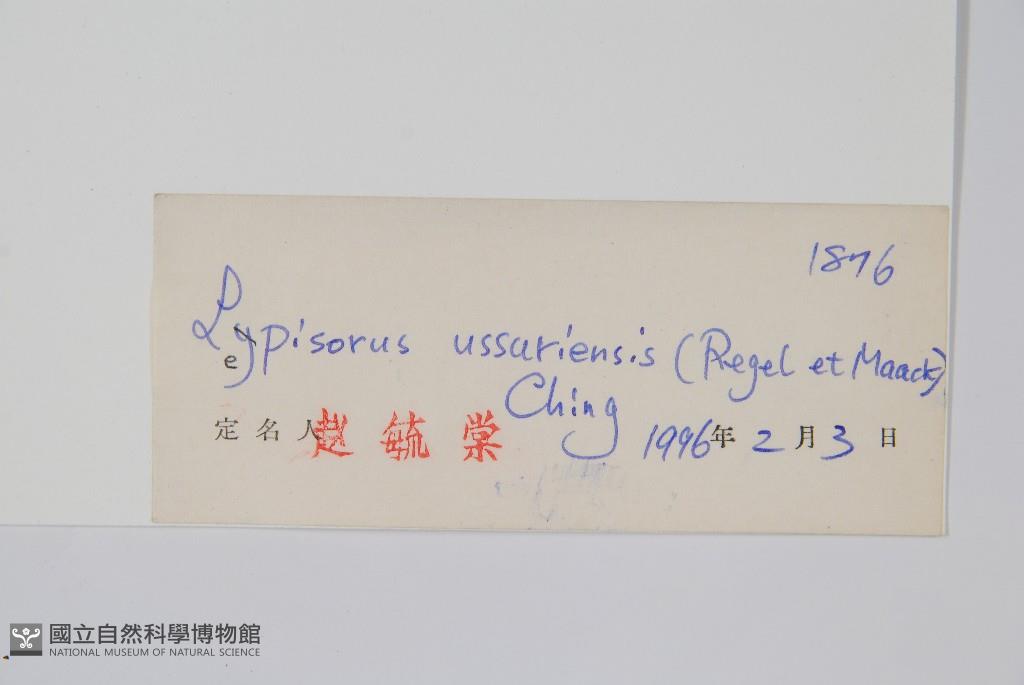 1876
Lepisorus ussuriensis (Regel et Maack)
Ching
定名人 赵毓棠 1996年2月3日
國立自然科學博物館
NATIONAL MUSEUM OF NATURAL SCIENCE